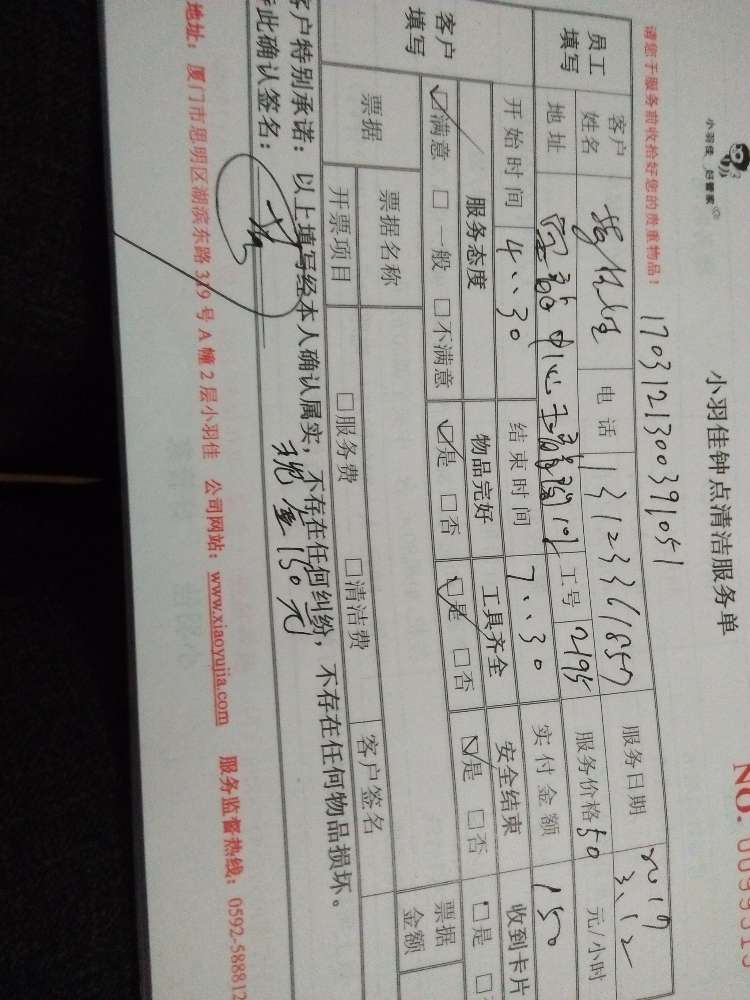 小羽佳 好管家
小羽佳钟点清洁服务单
1703121300391051
请您于服务前收拾好您的贵重物品！
员工填写 客户姓名 电话 13123361857 服务日期 2017 3.12
地址 工号 2195 服务价格 50 元/小时
开始时间 4:30 结束时间 7:30 实付金额 150
客户填写 服务态度 物品完好 工具齐全 安全结束 收到卡片
☑满意 □一般 □不满意 ☑是 □否 ☑是 □否 ☑是 □否 □是
票据 票据名称 □服务费 □清洁费 客户签名 票据金额
开票项目
客户特别承诺：以上填写经本人确认属实，不存在任何纠纷，不存在任何物品损坏。
此确认签名：
现金150元
地址：厦门市思明区湖滨东路319号A幢2层小羽佳 公司网站：www.xiaoyujia.com 服务监督热线：0592-588812